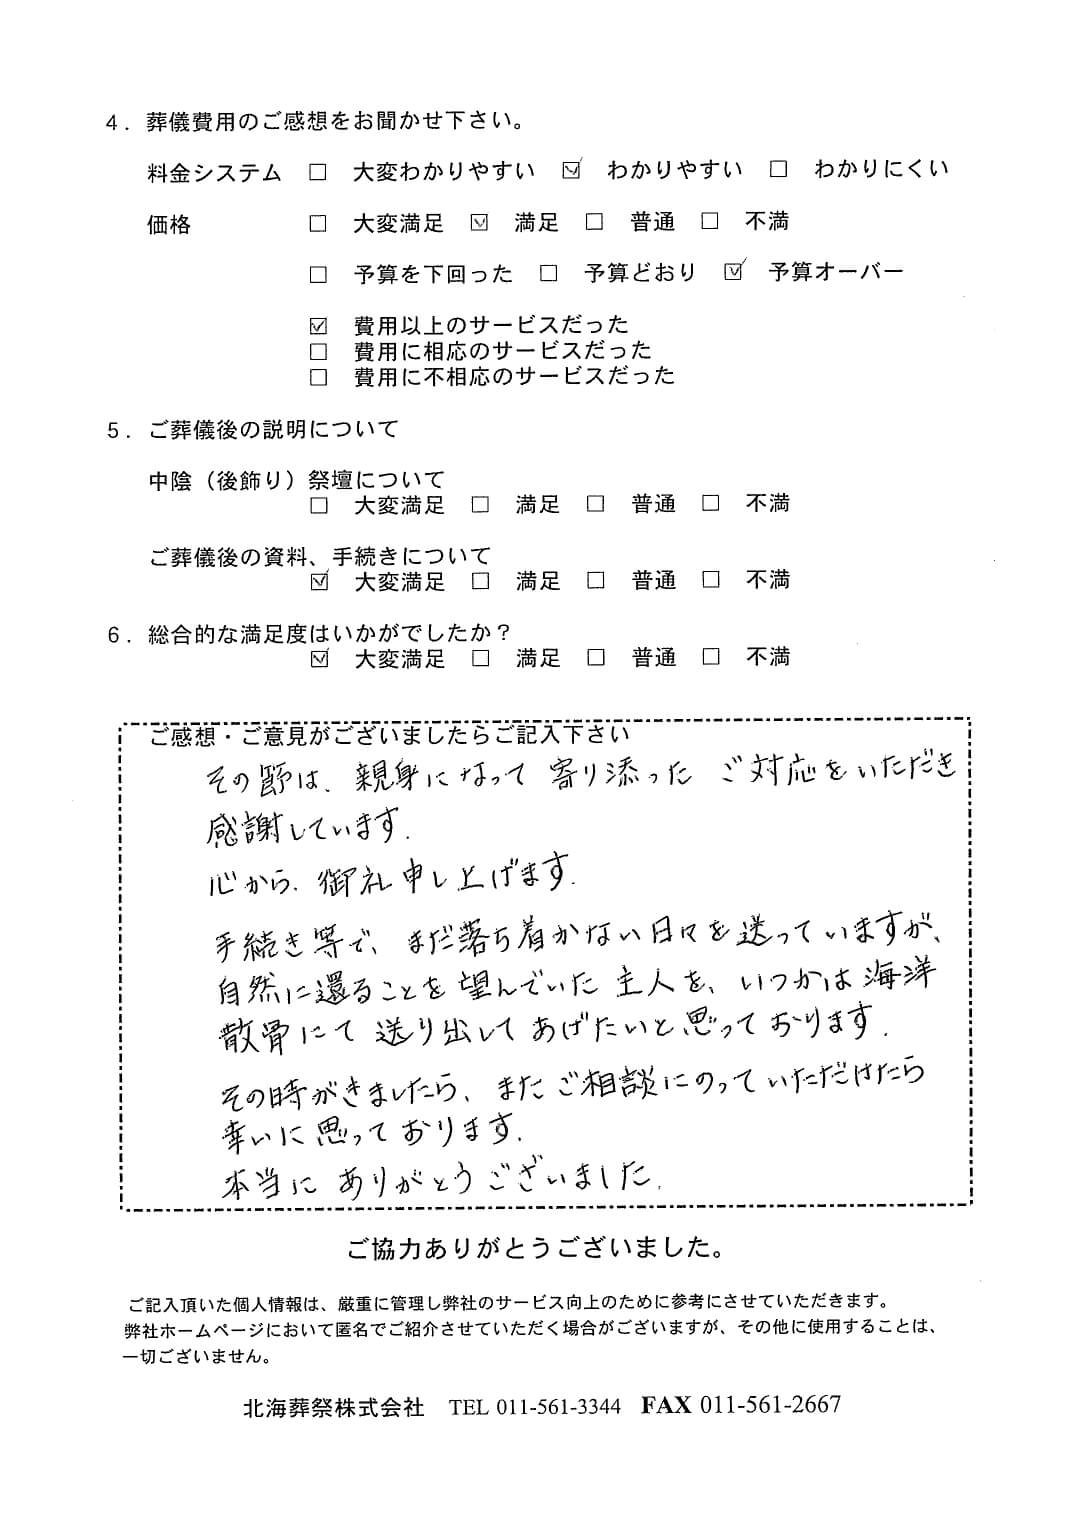 4．葬儀費用のご感想をお聞かせ下さい。
料金システム □ 大変わかりやすい ☑ わかりやすい □ わかりにくい
価格 □ 大変満足 ☑ 満足 □ 普通 □ 不満
□ 予算を下回った □ 予算どおり ☑ 予算オーバー
☑ 費用以上のサービスだった
□ 費用に相応のサービスだった
□ 費用に不相応のサービスだった
5．ご葬儀後の説明について
中陰（後飾り）祭壇について
□ 大変満足 □ 満足 □ 普通 □ 不満
ご葬儀後の資料、手続きについて
☑ 大変満足 □ 満足 □ 普通 □ 不満
6．総合的な満足度はいかがでしたか？
☑ 大変満足 □ 満足 □ 普通 □ 不満
ご感想・ご意見がございましたらご記入下さい
その節は、親身になって寄り添ったご対応をいただき
感謝しています.
心から、御礼申し上げます.
手続き等で、まだ落ち着かない日々を送っていますが、
自然に還ることを望んでいた主人を、いつかは海洋
散骨にて送り出してあげたいと思っております.
その時がきましたら、またご相談にのっていただけたら
幸いに思っております.
本当にありがとうございました.
ご協力ありがとうございました。
ご記入頂いた個人情報は、厳重に管理し弊社のサービス向上のために参考にさせていただきます。
弊社ホームページにおいて匿名でご紹介させていただく場合がございますが、その他に使用することは、
一切ございません。
北海葬祭株式会社 TEL 011-561-3344 FAX 011-561-2667